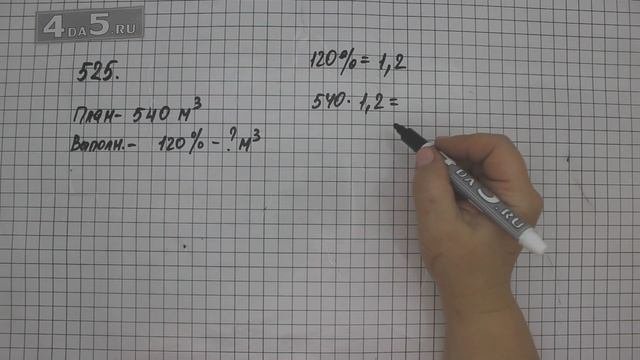 4DA5.RU
525.
План - 540 м³
Выполн. - 120% - ? м³
120% = 1,2
540 · 1,2 =
DA5.RU